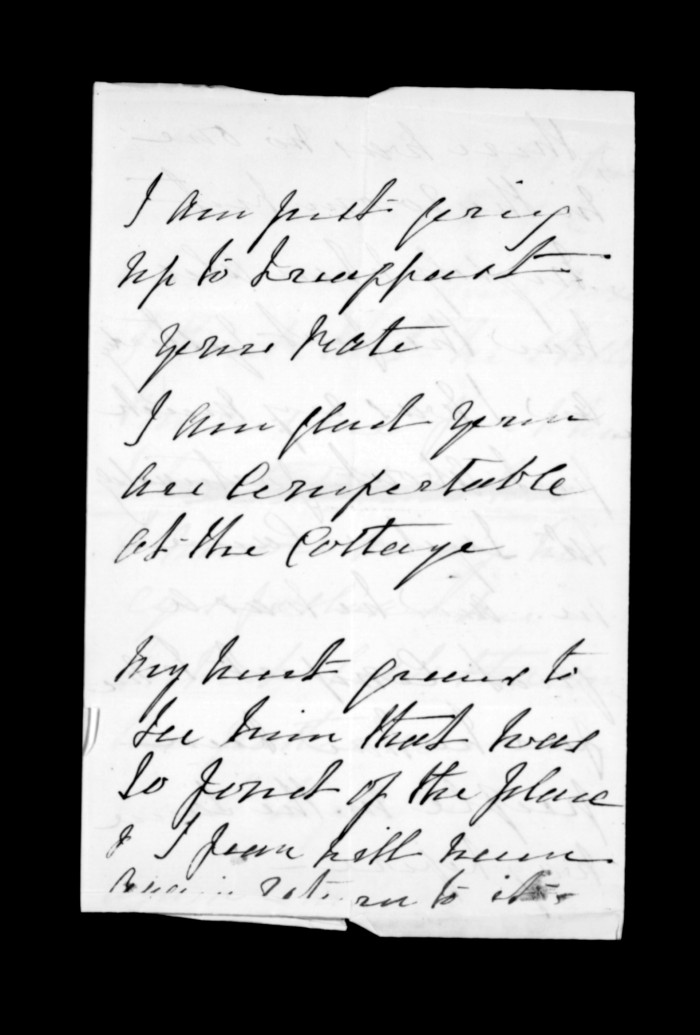 I am just going
up to
your note
I am glad you
are Comfortable
at the Cottage
My heart grieves to
see him that was
so fond of the place
& I fear will never
again return to it